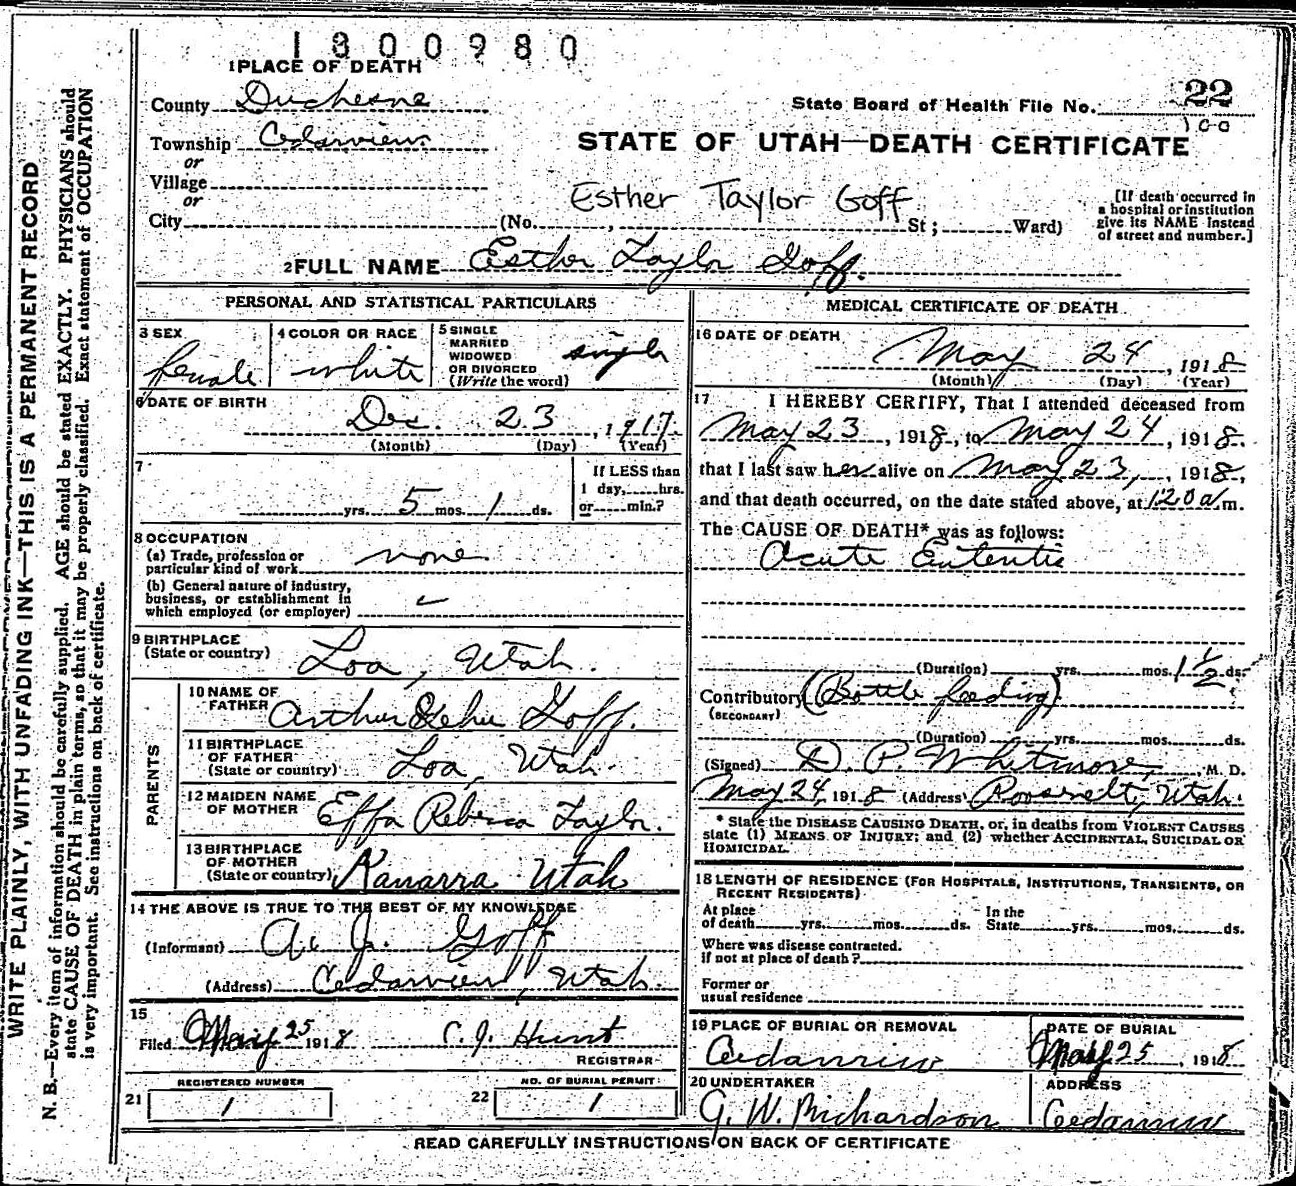 1300980
1 PLACE OF DEATH
County Duchesne
State Board of Health File No. 22
100
Township Cedarview
or
STATE OF UTAH—DEATH CERTIFICATE
Village
or
Esther Taylor Goff
City (No. , St; Ward)
[If death occurred in
a hospital or institution
give its NAME instead
of street and number.]
2 FULL NAME Esther Taylor Goff.
PERSONAL AND STATISTICAL PARTICULARS
3 SEX
female
4 COLOR OR RACE
white
5 SINGLE
MARRIED
WIDOWED
OR DIVORCED
(Write the word)
single
6 DATE OF BIRTH
Dec. 23, 1917.
(Month) (Day) (Year)
7
yrs. 5 mos. 1 ds.
If LESS than
1 day, hrs.
or min.?
8 OCCUPATION
(a) Trade, profession or
particular kind of work none
(b) General nature of industry,
business, or establishment in
which employed (or employer)
9 BIRTHPLACE
(State or country) Loa, Utah.
PARENTS
10 NAME OF
FATHER Arthur Goff.
11 BIRTHPLACE
OF FATHER
(State or country) Loa, Utah.
12 MAIDEN NAME
OF MOTHER Effa Rebecca Taylor.
13 BIRTHPLACE
OF MOTHER
(State or country) Kanarra Utah
14 THE ABOVE IS TRUE TO THE BEST OF MY KNOWLEDGE
(Informant) A. J. Goff
(Address) Cedarview, Utah.
15
Filed May 25 1918 C. J. Hunt
REGISTRAR
21 REGISTERED NUMBER
1
22 NO. OF BURIAL PERMIT
1
MEDICAL CERTIFICATE OF DEATH
16 DATE OF DEATH
May 24, 1918
(Month) (Day) (Year)
17 I HEREBY CERTIFY, That I attended deceased from
May 23, 1918, to May 24, 1918.
that I last saw her alive on May 23, 1918,
and that death occurred, on the date stated above, at 120 a m.
The CAUSE OF DEATH* was as follows:
Acute
(Duration) yrs. mos. 1 1/2 ds.
Contributory (Bottle feeding)
(SECONDARY)
(Duration) yrs. mos. ds.
(Signed) D. P. Whitmore, M. D.
May 24, 1918 (Address) Roosevelt, Utah.
* State the DISEASE CAUSING DEATH, or, in deaths from VIOLENT CAUSES
state (1) MEANS OF INJURY; and (2) whether ACCIDENTAL, SUICIDAL OR
HOMICIDAL.
18 LENGTH OF RESIDENCE (FOR HOSPITALS, INSTITUTIONS, TRANSIENTS, OR
RECENT RESIDENTS)
At place
of death yrs. mos. ds. In the
State yrs. mos. ds.
Where was disease contracted.
if not at place of death?
Former or
usual residence
19 PLACE OF BURIAL OR REMOVAL
Cedarview
DATE OF BURIAL
May 25, 1918
20 UNDERTAKER
G. W. Richardson
ADDRESS
Cedarview
READ CAREFULLY INSTRUCTIONS ON BACK OF CERTIFICATE
WRITE PLAINLY, WITH UNFADING INK—THIS IS A PERMANENT RECORD
N. B.—Every item of information should be carefully supplied. AGE should be stated EXACTLY. PHYSICIANS should
state CAUSE OF DEATH in plain terms, so that it may be properly classified. Exact statement of OCCUPATION
is very important. See instructions on back of certificate.